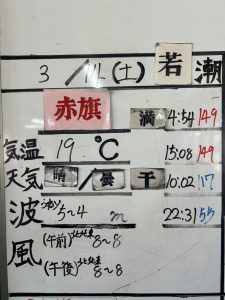 3/14(土) 若潮
赤旗 満 4:54 149
気温 19℃ 15:08 149
天気 晴/曇 干 10:02 117
波 5~4 m 22:31 55
風 (午前) 北北東 8~8
(午後) 北北東 8~8